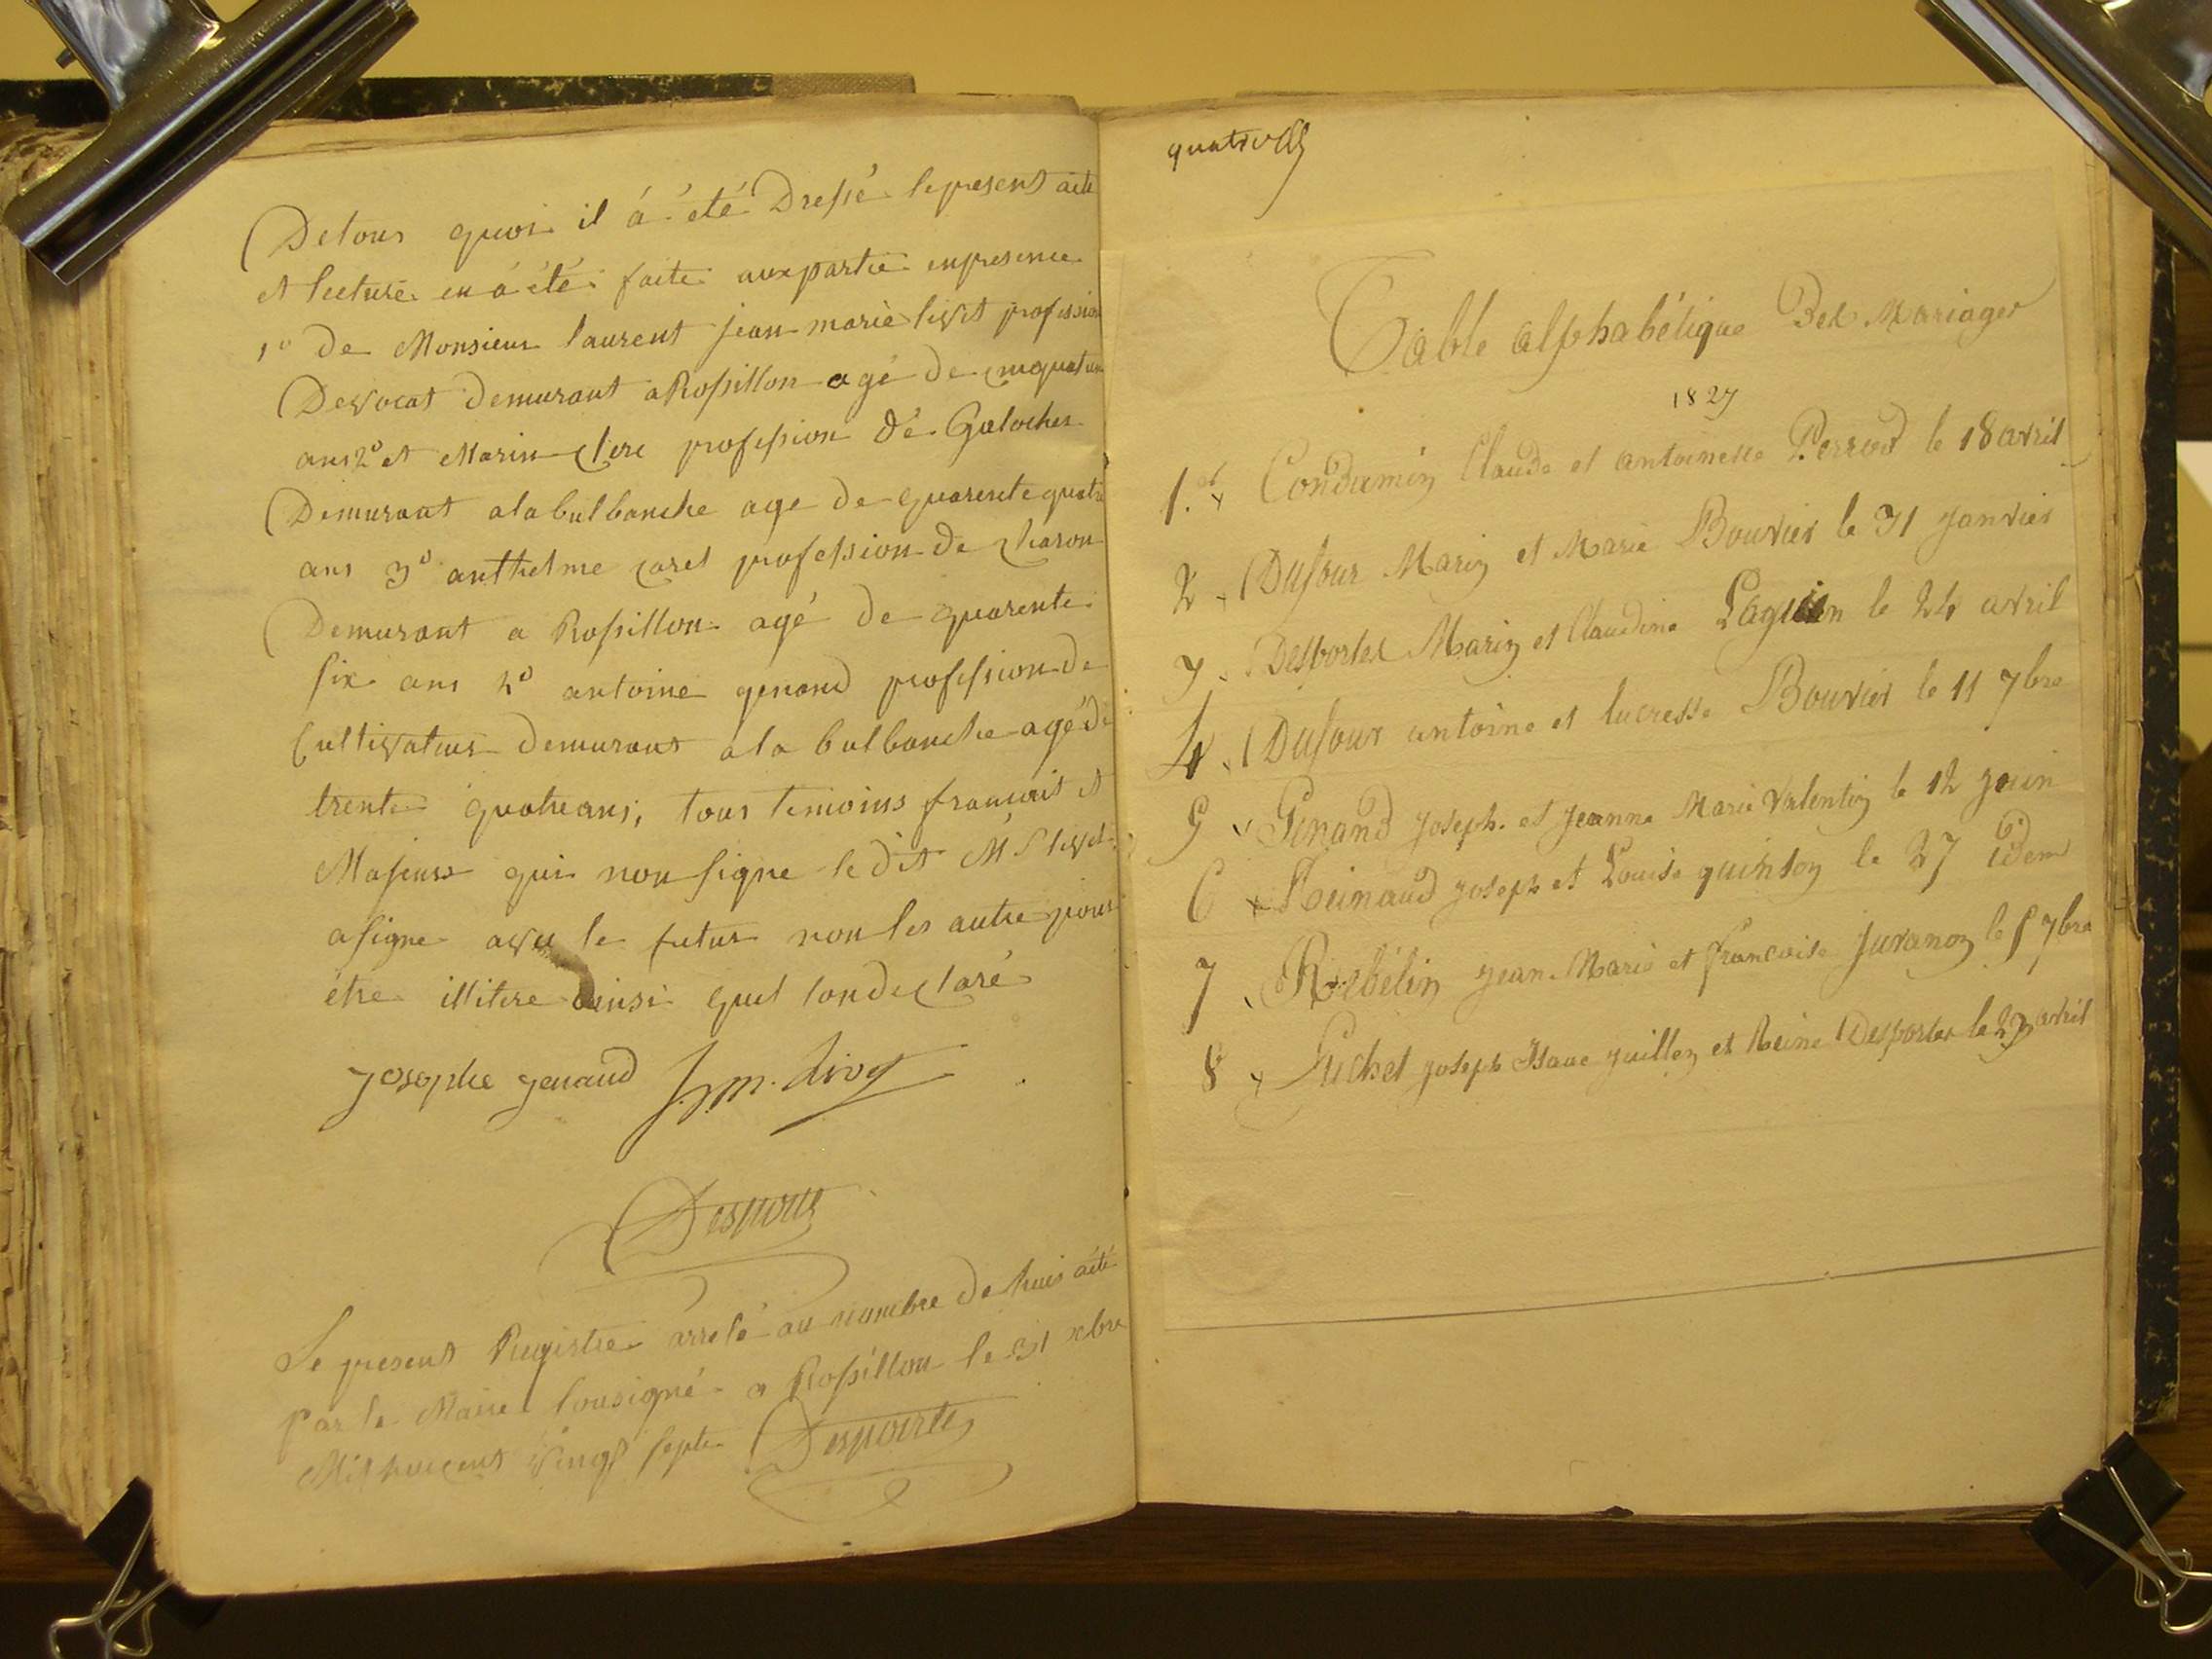 De tous quoi il á été Dressé le present acte
et lecture en á été faite aux partie en presence
1º de Monsieur laurent jean marie livet profession
Devocat demurant a Rossillon agé de cinquat un
ans 2º et Marin clere profession dé Galocher
Demurant a la bulbanche age de quarente quatre
ans 3º anthelme caret profession de charon
Demurant a Rossillon agé de quarente
six ans 4º antoine genand profession de
Cultivateur demurant a la bulbanche agé de
trente quatre ans, tous temoins français et
Majeurs qui non signe le dit Mr livet
a signe avec le futur non les autre pour
étre illitere ainsi quel lon declaré
josephe genaud j.j.m. Livet
Desportes
Le present Registre arreté au nombre de huit acté
Par le Maire sousigné a Rossillon le 31 xbre
Mil huit cent vingt septe Desportes
quatre
Table alphabétique Des Mariages
1827
1.er Condamin Claude et antoinette Perrod le 18 avril
2 Dufour Marin et Marie Bouvier le 31 janvier
3 Desportes Marin et Claudine Laguin le 24 avril
4 Dufour antoine et lucresse Bouvier le 11 7bre
5 Genand joseph et jeanne Marie Valentin le 12 juin
6 Reinaud joseph et Louise quinson le 27 idem
7 Rebélin jean Marie et francoise juvanon le 5 7bre
8 Guchet joseph Isaac juillen et Reine Desportes le 23 avril